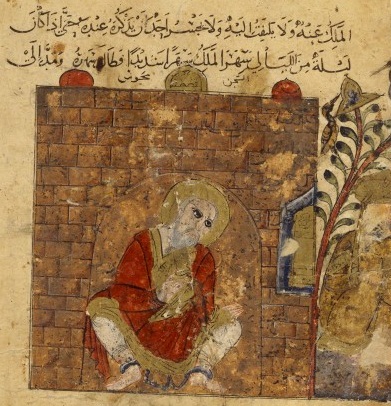 الملك عنه ولا يلتفت اليه ولا يجسر احد ان يذكره عنده حتى اذا كان
ليلة من الليالي سهر الملك سهرا شديدا وطال سهره ومد الى